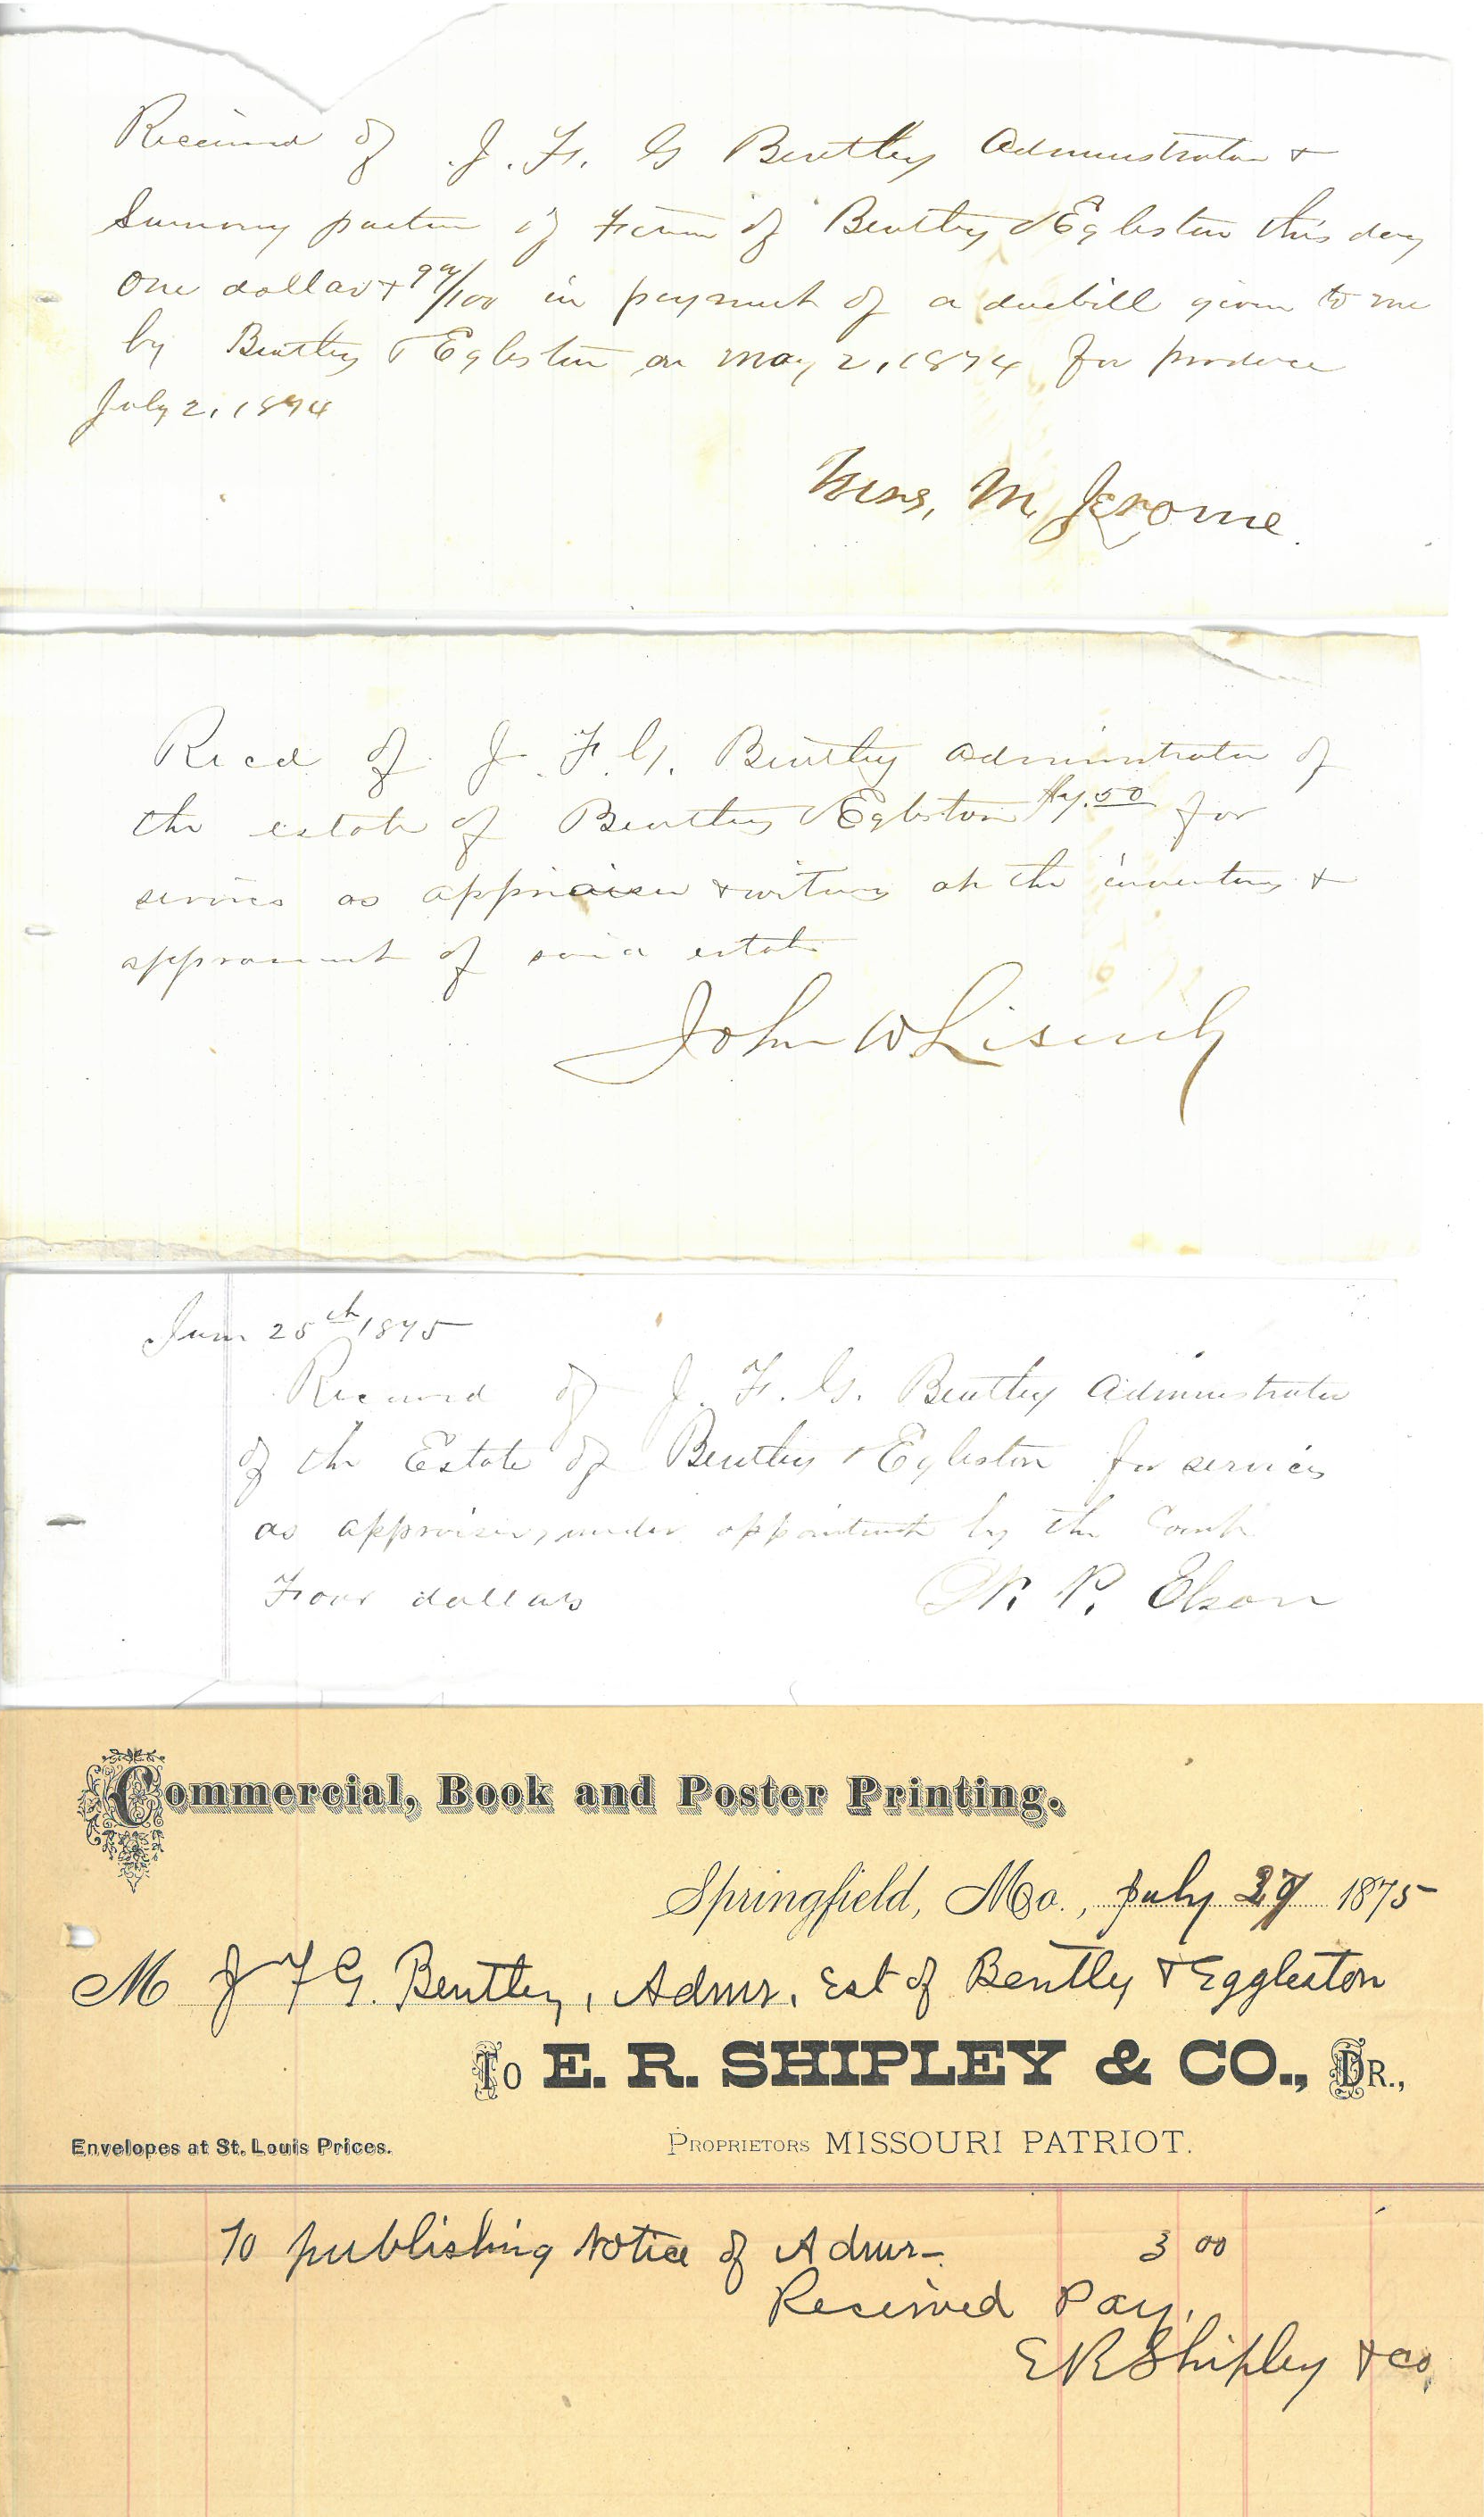 Received of J. F. G Bentley Administrator &
Surviving partner of Firm of Bentley & Egleston this day
One dollar & 94/100 in payment of a duebill given to me
by Bentley & Egleston on May 2, 1874 for produce
July 2, 1874
Mrs, M. Jerome.
Recd of J. F. G. Bentley administrator of
the estate of Bentley & Egleston for
services as appraiser & writing oh the inventory &
appraisment of said estate
John W
25th 1875
Received of J. F. G. Bentley Administrator
of the Estate of Bentley & Egleston for services
as appraiser, under appointment by the Court
Four dollars P. Elson
Commercial, Book and Poster Printing.
Springfield, Mo., July 1875
M J F G. Bentley, Admr. Est of Bentley & Eggleston
To E. R. SHIPLEY & CO., DR.,
Envelopes at St. Louis Prices. PROPRIETORS MISSOURI PATRIOT.
To publishing Notice of Admr- 3 00
Received Pay,
E R Shipley & Co,